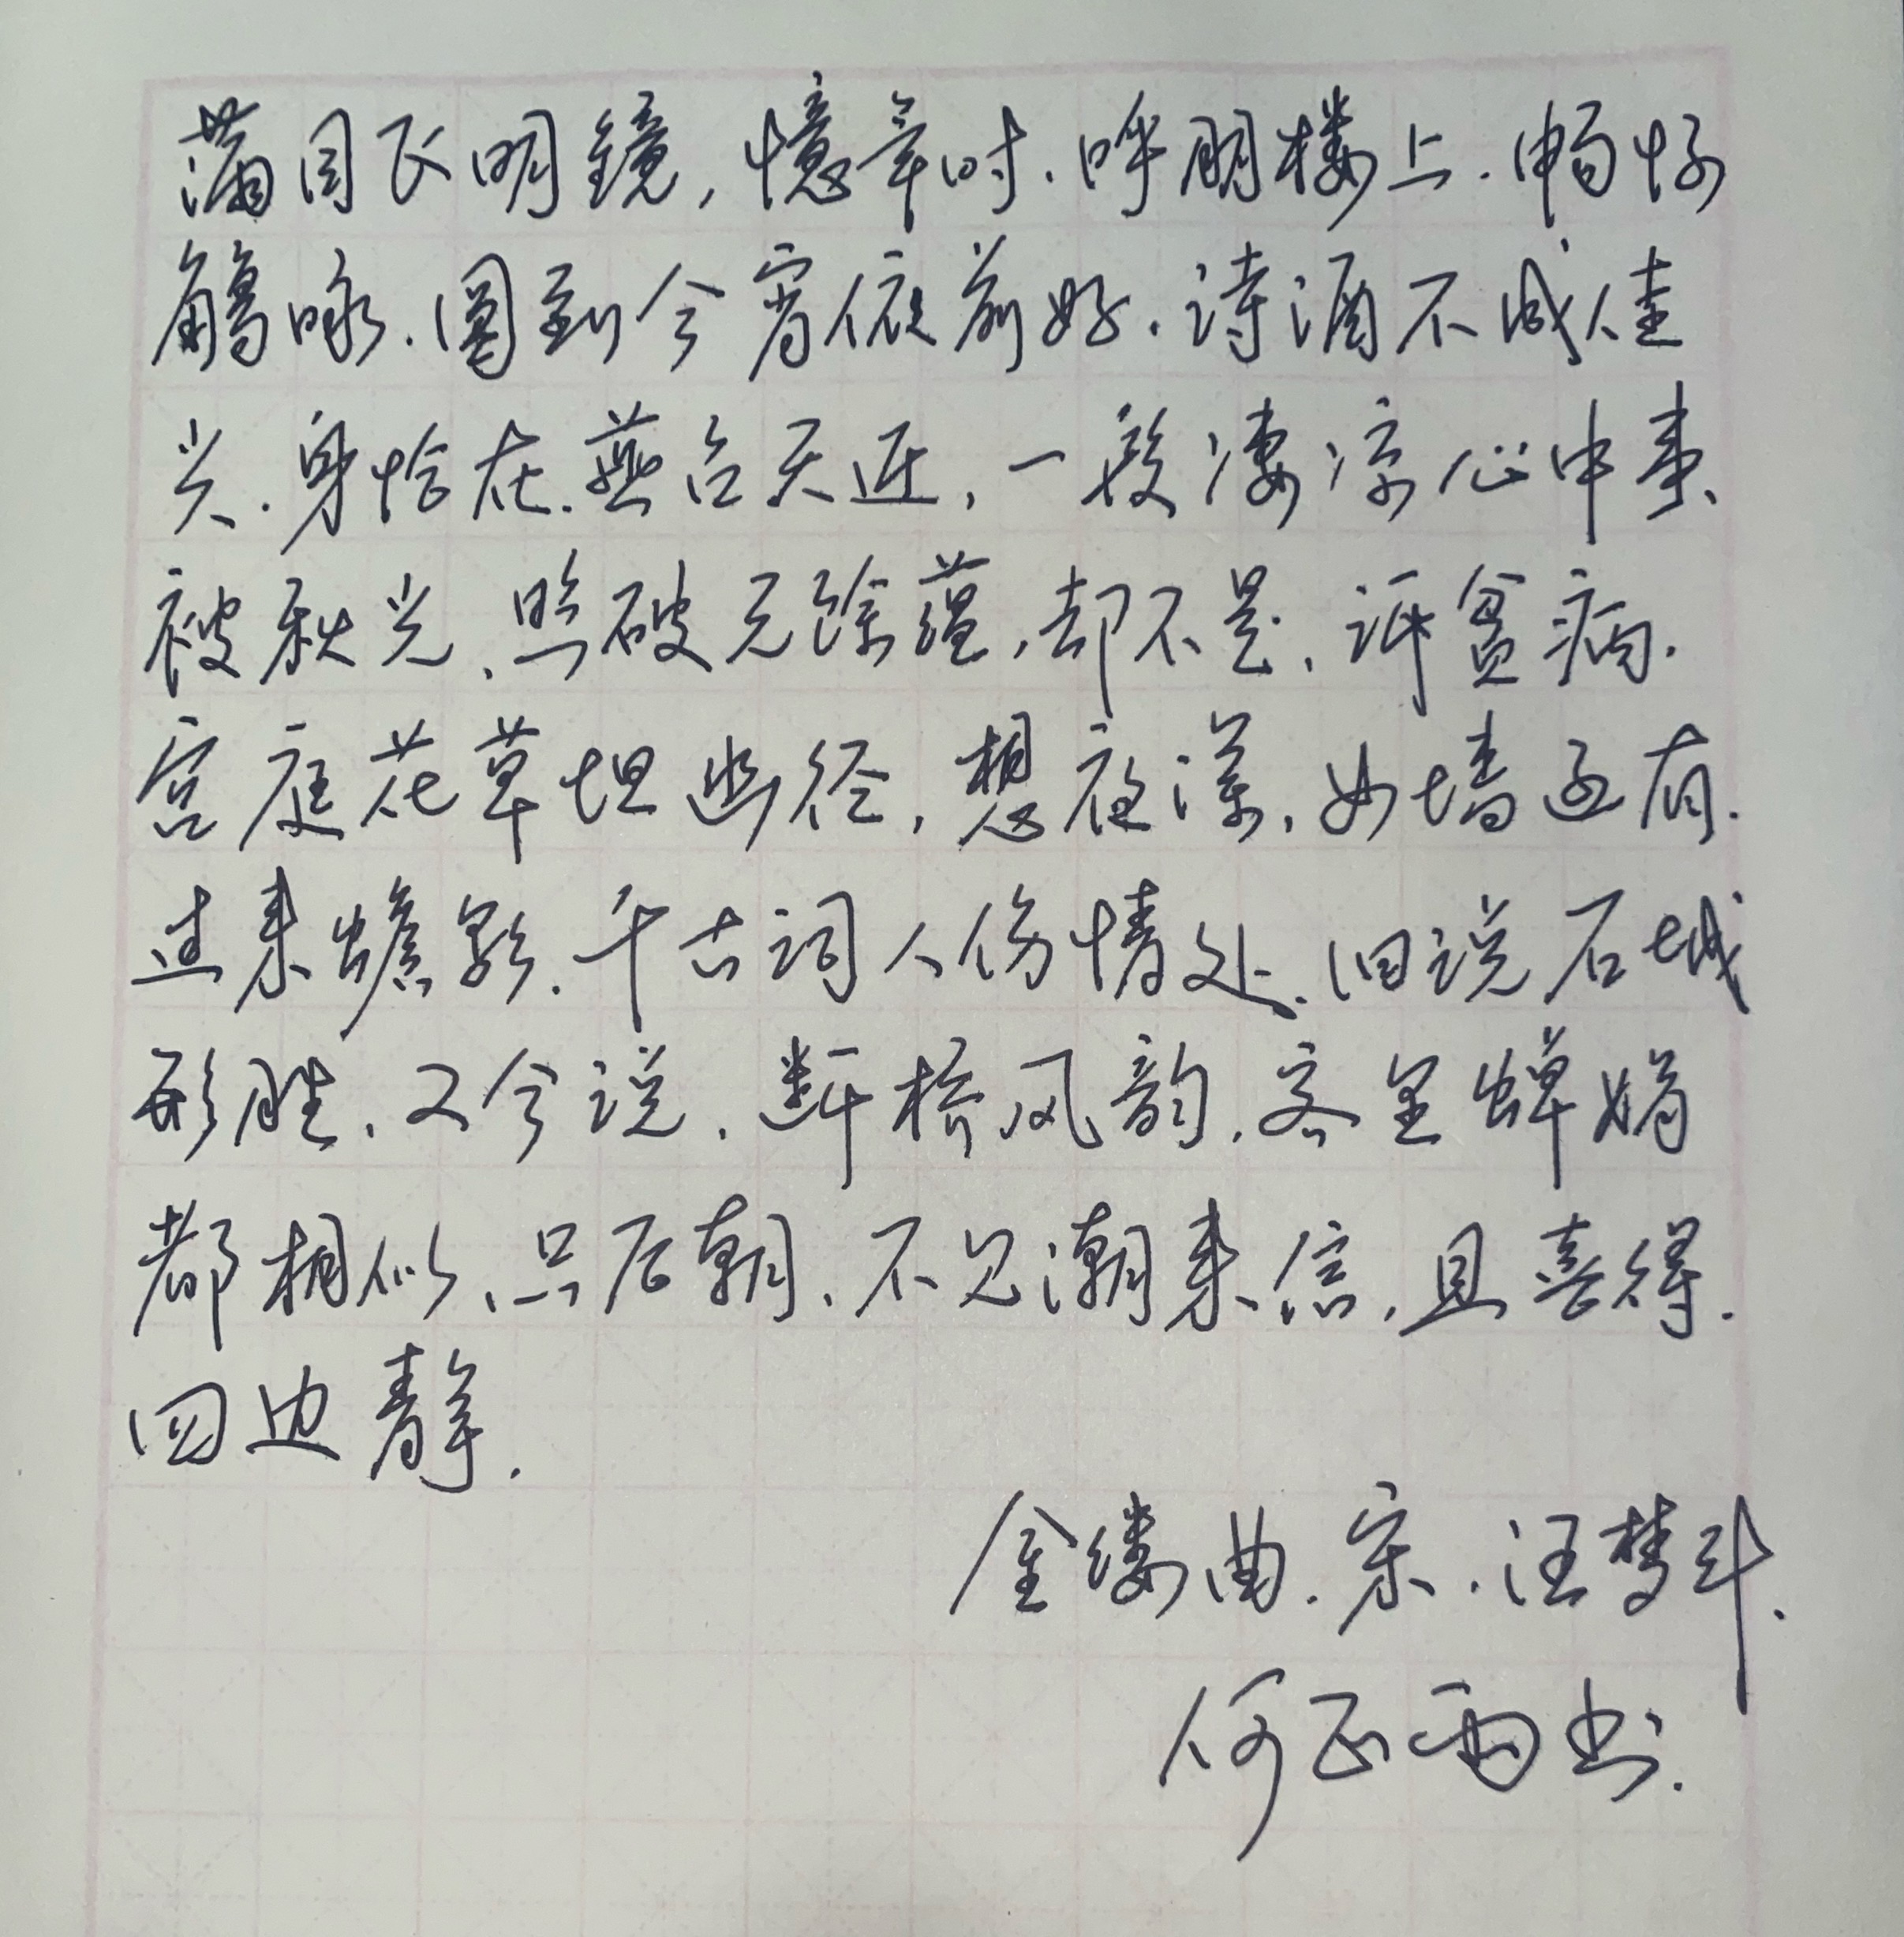 满目飞明镜，憶年时.呼朋楼上.畅怀
觞咏.圆到今宵依前好.诗酒不减佳
兴.身恰在.燕台天近，一段凄凉心中事、
被秋光、照破无馀蕴，却不是、诉贫病.
宫庭花草埋幽径，想夜深，女墙还有.
过来蟾影.千古词人伤情处、旧说石城
形胜、又今说、断桥风韵.客里蝉娟
都相似、只后朝、不见潮来信，且喜得.
四边静.
金缕曲.宋.汪梦斗.
何正雨书.